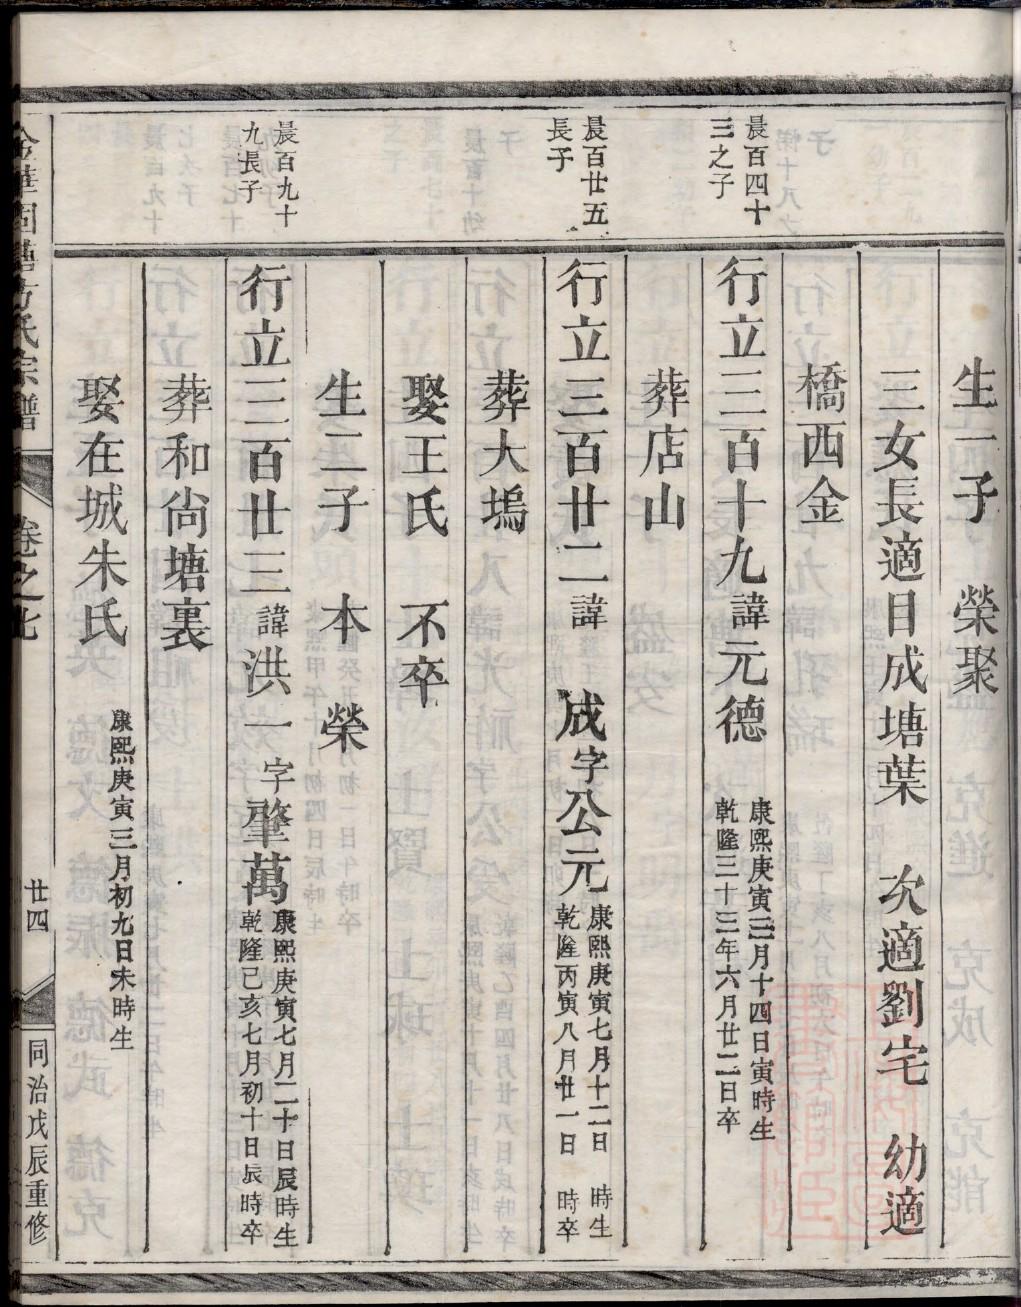 生一子　榮聚
三女長適日成塘葉　次適劉宅　幼適
橋西金
晨百四十
三之子
行立三百十九諱元德
康熙庚寅三月十四日寅時生
乾隆三十三年六月廿二日卒
葬店山
晨百廿五
長子
行立三百廿二諱　成字公元
康熙庚寅七月十二日　時生
乾隆丙寅八月廿一日　時卒
葬大塢
娶王氏　不卒
生二子　本　榮
晨百九十
九長子
行立三百廿三諱洪一字肇萬
康熙庚寅七月二十日辰時生
乾隆己亥七月初十日辰時卒
葬和尙塘裏
娶在城朱氏
康熙庚寅三月初九日未時生
卷之七
廿四
同治戊辰重修